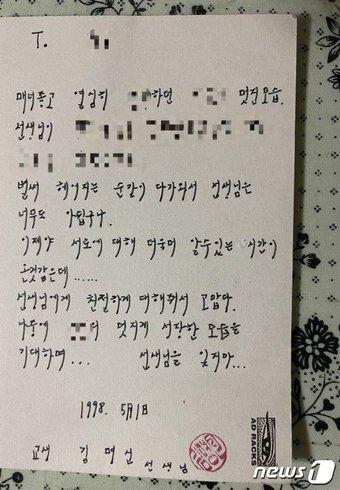 T.
매너좋고 열심히 하던 멋진모습.
선생님이
벌써 헤어지는 순간이 다가와서 선생님은
너무도 아쉽구나.
이제야 서로에 대해 더욱더 알수있는 시간이
온것같은데......
선생님에게 친절하게 대해줘서 고맙다.
나중에 의 멋지게 성장한 모습을
기대하며... 선생님을 잊지마...
1998. 5月1日
교생 김명선 선생님
AD RACKS
news1